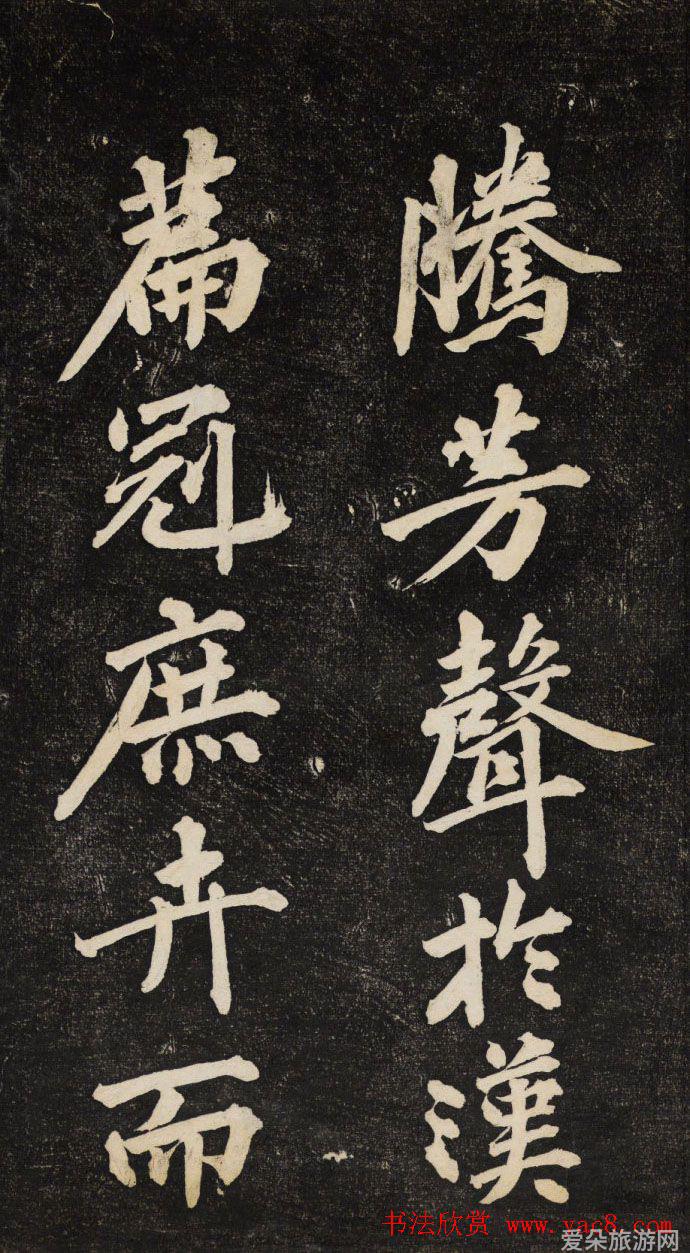 騰芳聲於漢
篇冠庶卉而
书法欣赏 www.yac8.com
爱朵旅游网